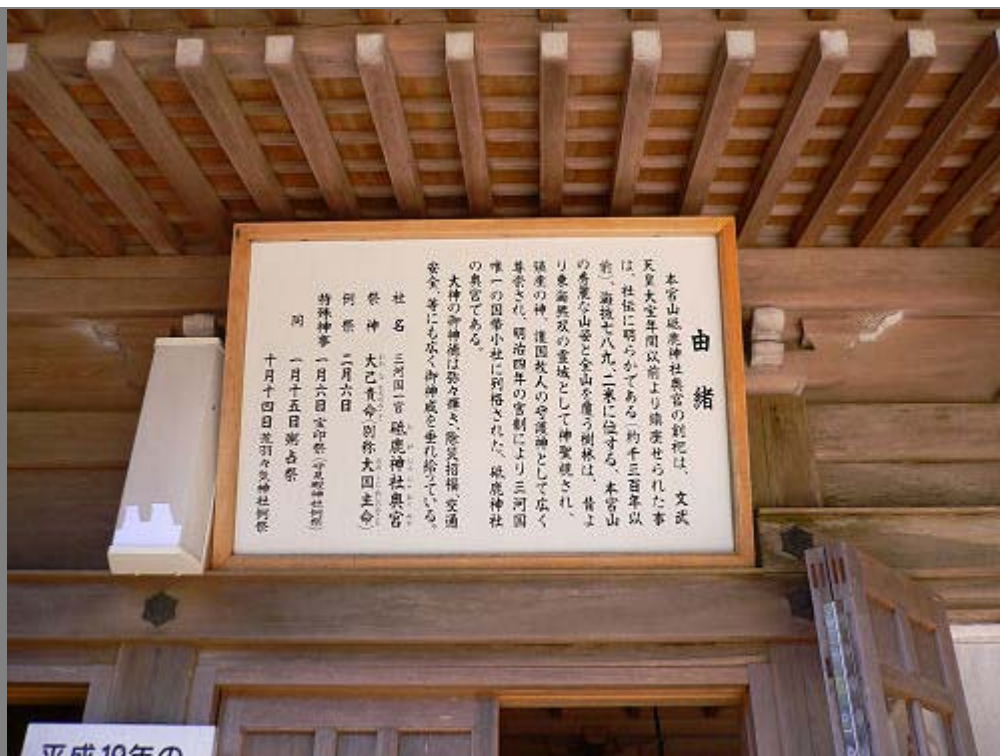 由緒
本宮山砥鹿神社奥宮の創祀は、文武
天皇大宝年間以前より鎮座せられた事
は、社伝に明らかである(約千三百年以
前)、海抜七八九、二米に位する、本宮山
の秀麗な山姿と全山を覆う樹林は、昔よ
り東海無双の霊域として神聖視され、
鎮座の神、護国救人の守護神として広く
尊崇され、明治四年の官制により三河国
唯一の国幣小社に列格された、砥鹿神社
の奥宮である。
大神の御神徳は弥々輝き、除災招福、交通
安全、等にも広く御神威を垂れ給っている。
社名 三河国一宮 砥鹿神社奥宮
祭神 大己貴命(別称大国主命)
例祭 二月六日
特殊神事 一月六日 宝印祭(守見殿神社例祭)
同 一月十五日 粥占祭
十月十四日 荒羽々気神社例祭
平成19年の